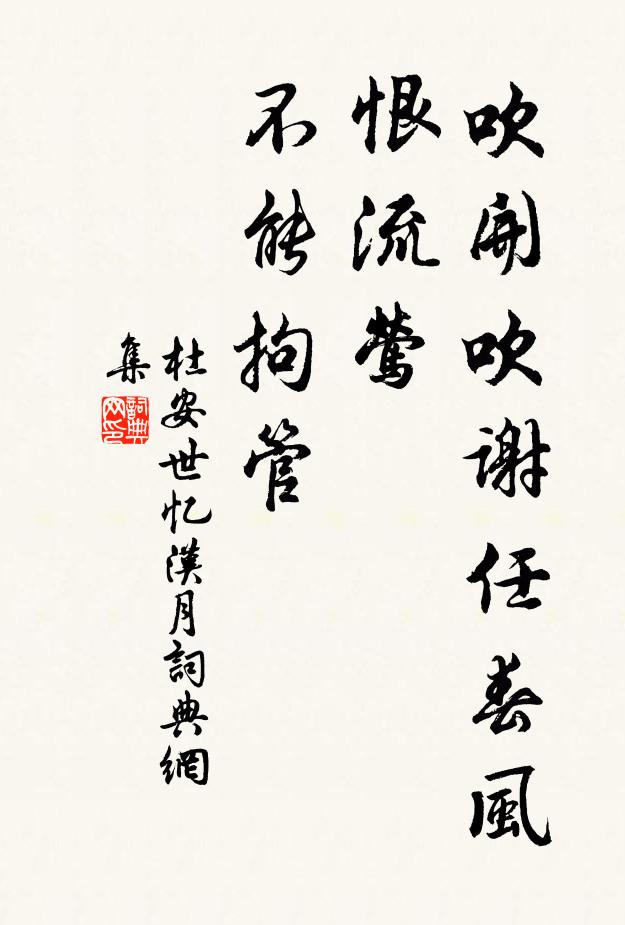 吹開吹谢任春風
恨流莺
不能拘管
杜安世忆漢月詞典網
集
詞典
网印